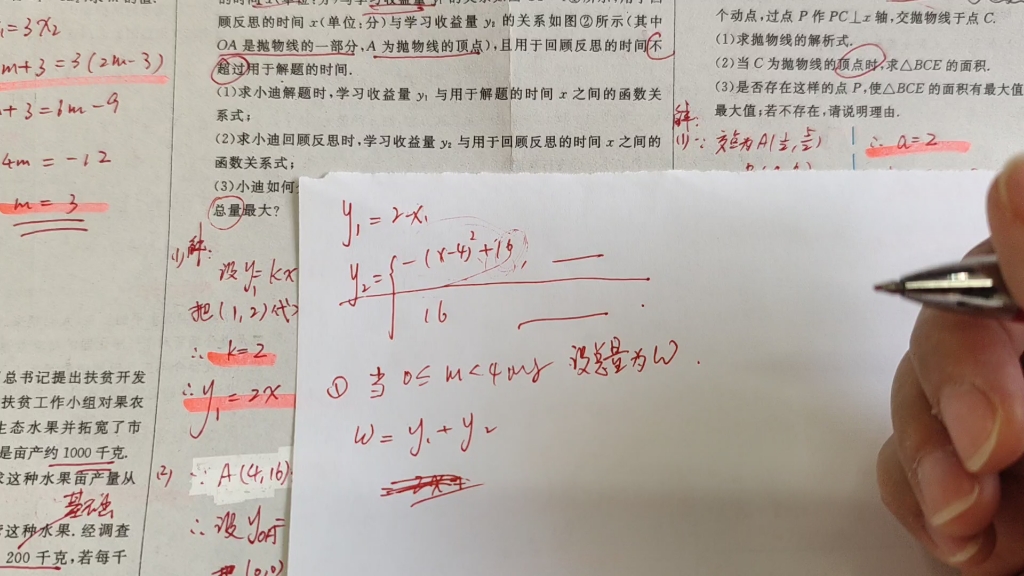 =3x2
m+3=3(2m-3)
+3=6m-9
4m=-12
m=3
总书记提出扶贫开发
扶贫工作小组对果农
生态水果并拓宽了市
是亩产约1000千克.
求这种水果亩产量从
这种水果.经调查
200千克,若每千
顾反思的时间x(单位:分)与学习收益量y₂的关系如图②所示(其中
OA是抛物线的一部分,A为抛物线的顶点),且用于回顾反思的时间不
超过用于解题的时间.
(1)求小迪解题时,学习收益量y₁与用于解题的时间x之间的函数关
系式;
(2)求小迪回顾反思时,学习收益量y₂与用于回顾反思的时间x之间的
函数关系式;
(3)小迪如何
总量最大?
(1)解:
设y₁=kx
把(1,2)代
∴k=2
∴y₁=2x
(2)∵A(4,16)
∴设yOA=
(0,0)
个动点,过点P作PC⊥x轴,交抛物线于点C.
(1)求抛物线的解析式.
(2)当C为抛物线的顶点时,求△BCE的面积.
(3)是否存在这样的点P,使△BCE的面积有最大值
最大值;若不存在,请说明理由.
解:
(1)∵交点为A(1/2,5/2)
∴a=2
y₁=2x
y₂={-(x-4)²+16,
16
① 当0≤m<4时 设总量为W.
W=y₁+y₂